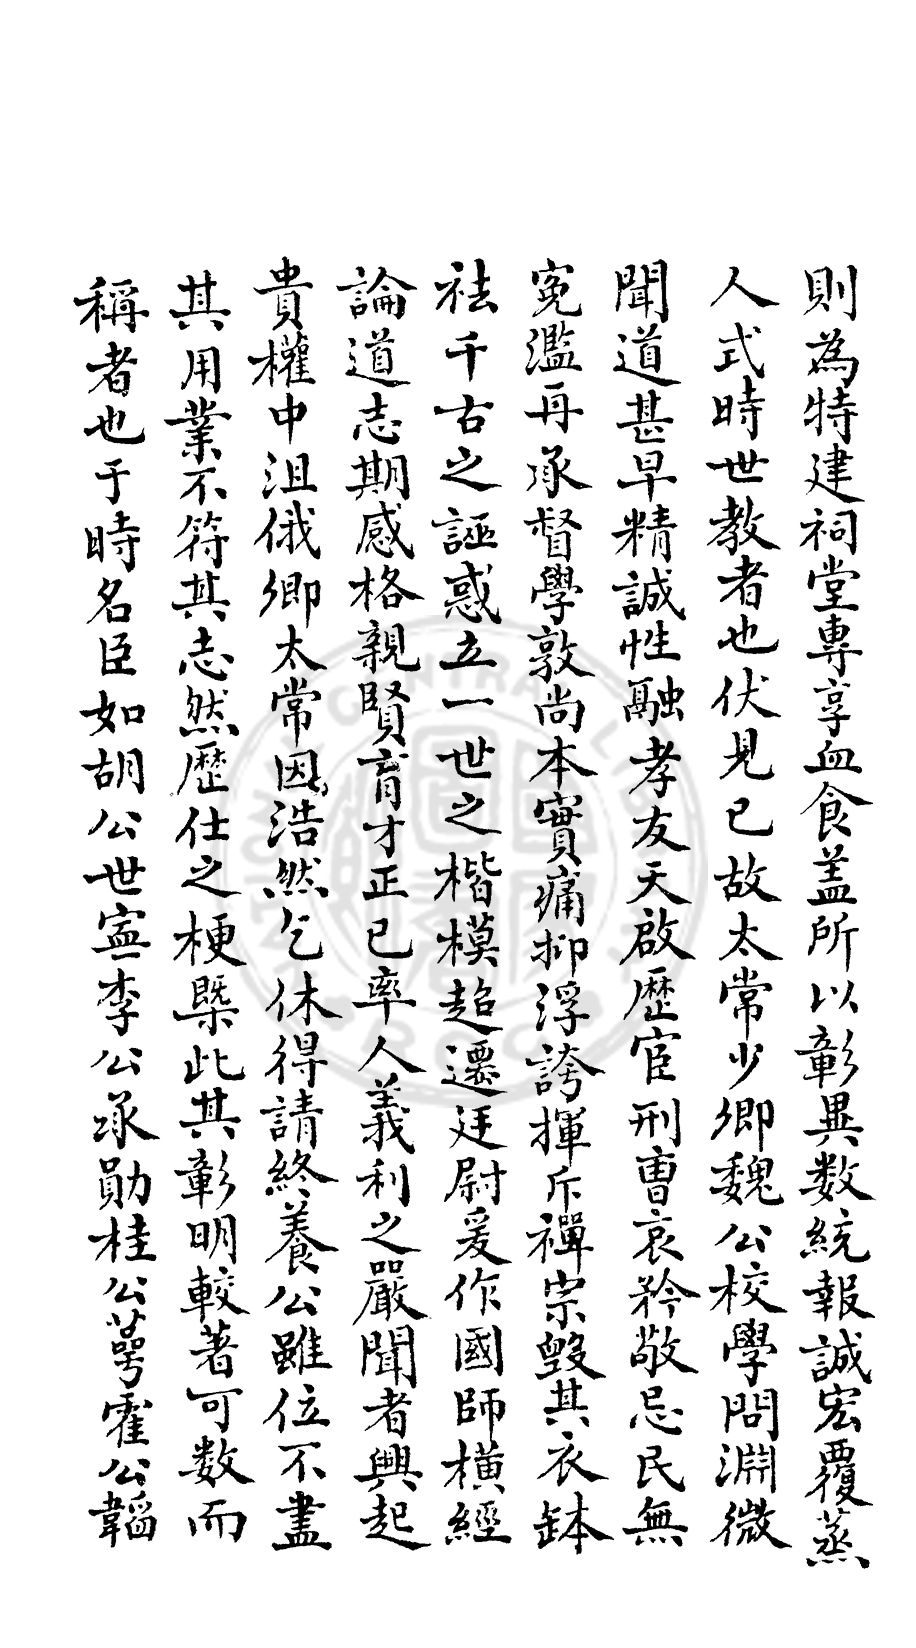 則為特建祠堂專享血食盖所以彰異数統報誠宏覆蒸
人式時世教者也伏見已故太常少卿魏公校學問淵微
聞道甚早精誠性融孝友天啟歷宦刑曹哀矜敬忌民無
寃濫再承督學敦尚本實痛抑浮誇揮斥禪宗毀其衣缽
祛千古之誣惑立一世之楷模超遷廷尉爰作國師橫經
論道志期感格親賢育才正已率人義利之嚴聞者興起
貴權中沮俄卿太常因浩然乞休得請終養公雖位不盡
其用業不符其志然歷仕之梗槩此其彰明較著可数而
稱者也于時名臣如胡公世寍李公承勛桂公萼霍公韜
CENTRAL L